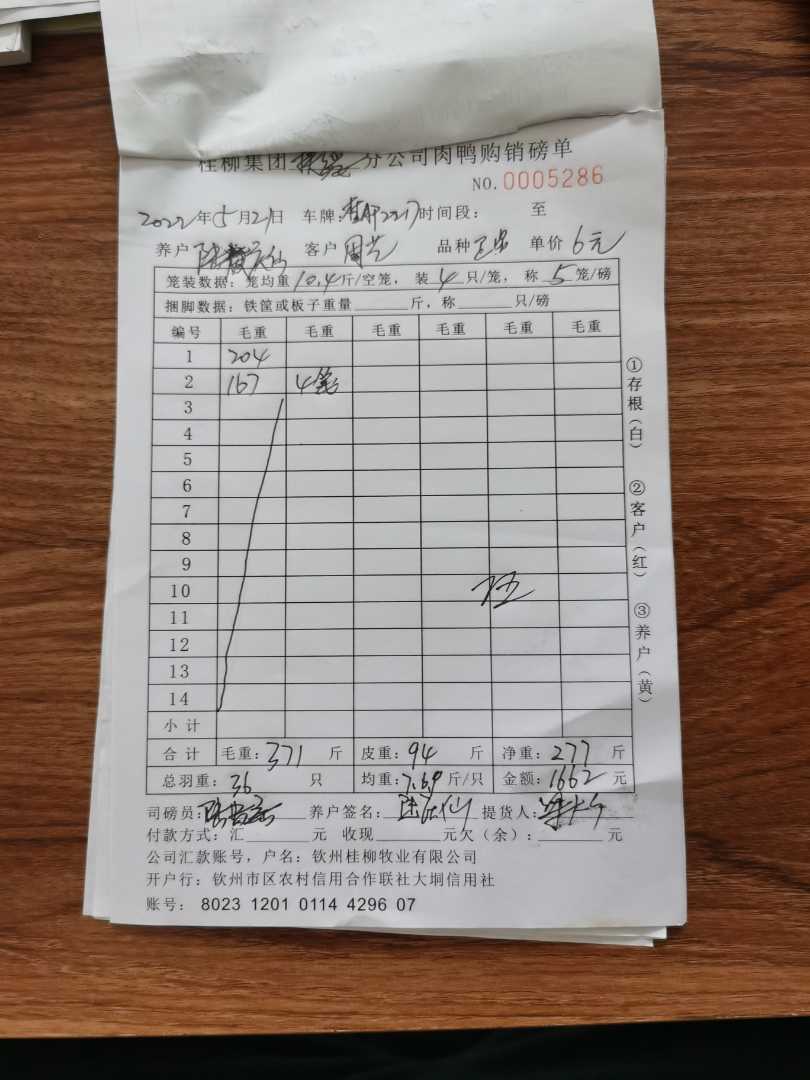 桂柳集团 分公司肉鸭购销磅单
NO.0005286
2022年5月21日 车牌: 时间段: 至
养户 客户 周 品种 正品 单价 6元
笼装数据:笼均重10.4斤/空笼,装4只/笼,称5笼/磅
捆脚数据:铁筐或板子重量____斤,称____只/磅
编号 毛重 毛重 毛重 毛重 毛重 毛重
1 204
2 167 4笼
3
4
5
6
7
8
9
10
11
12
13
14
小计
合计 毛重:371 斤 皮重:94 斤 净重:277 斤
总羽重:36 只 均重:7.69斤/只 金额:1662元
司磅员: 养户签名: 仙 提货人:
付款方式:汇____元 收现____元欠(余):____元
公司汇款账号,户名:钦州桂柳牧业有限公司
开户行:钦州市区农村信用合作联社大垌信用社
账号: 8023 1201 0114 4296 07
①存根(白)
②客户(红)
③养户(黄)